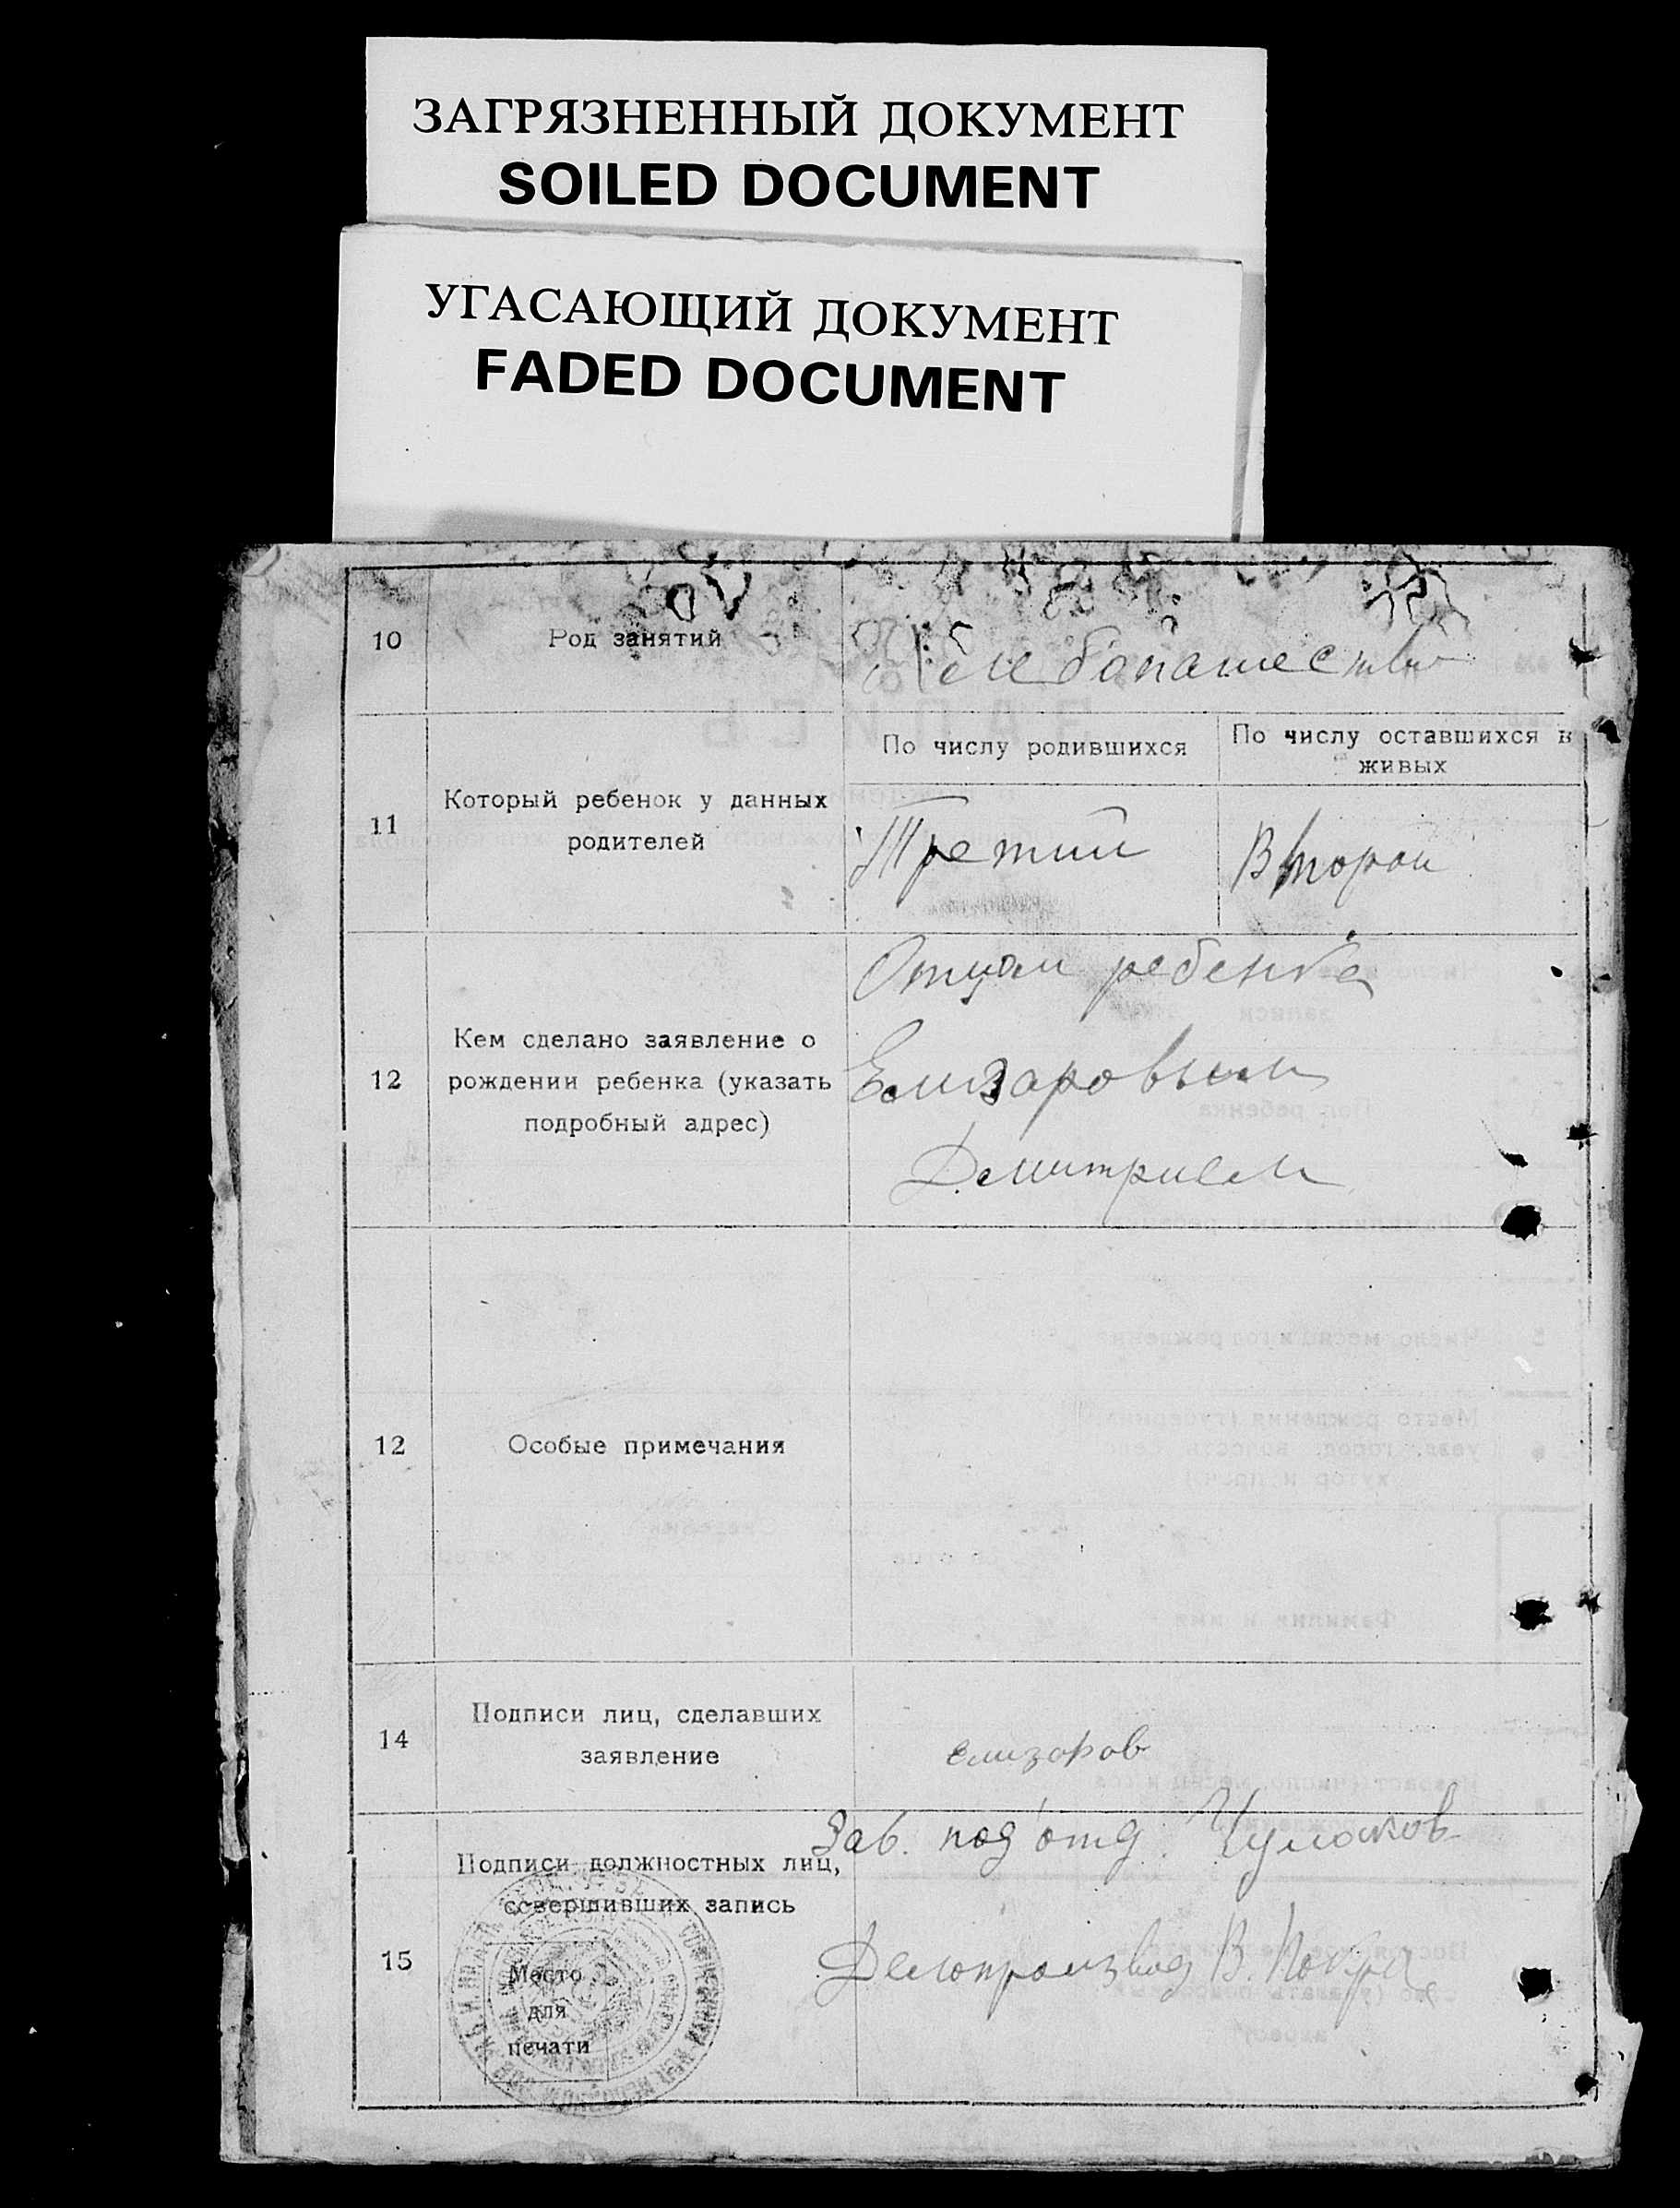 ЗАГРЯЗНЕННЫЙ ДОКУМЕНТ
SOILED DOCUMENT
УГАСАЮЩИЙ ДОКУМЕНТ
FADED DOCUMENT
10
Род занятий
Хлебопашество
11
Который ребенок у данных
родителей
По числу родившихся
По числу оставшихся в
живых
Третий
Второй
12
Кем сделано заявление о
рождении ребенка (указать
подробный адрес)
Отцом ребенка
Елизаровым
Дмитрием
12
Особые примечания
14
Подписи лиц, сделавших
заявление
елизаров
15
Подписи должностных лиц,
совершивших запись
Место
для
печати
Зав. под'отд. Чумаков
Делопроизвод В.